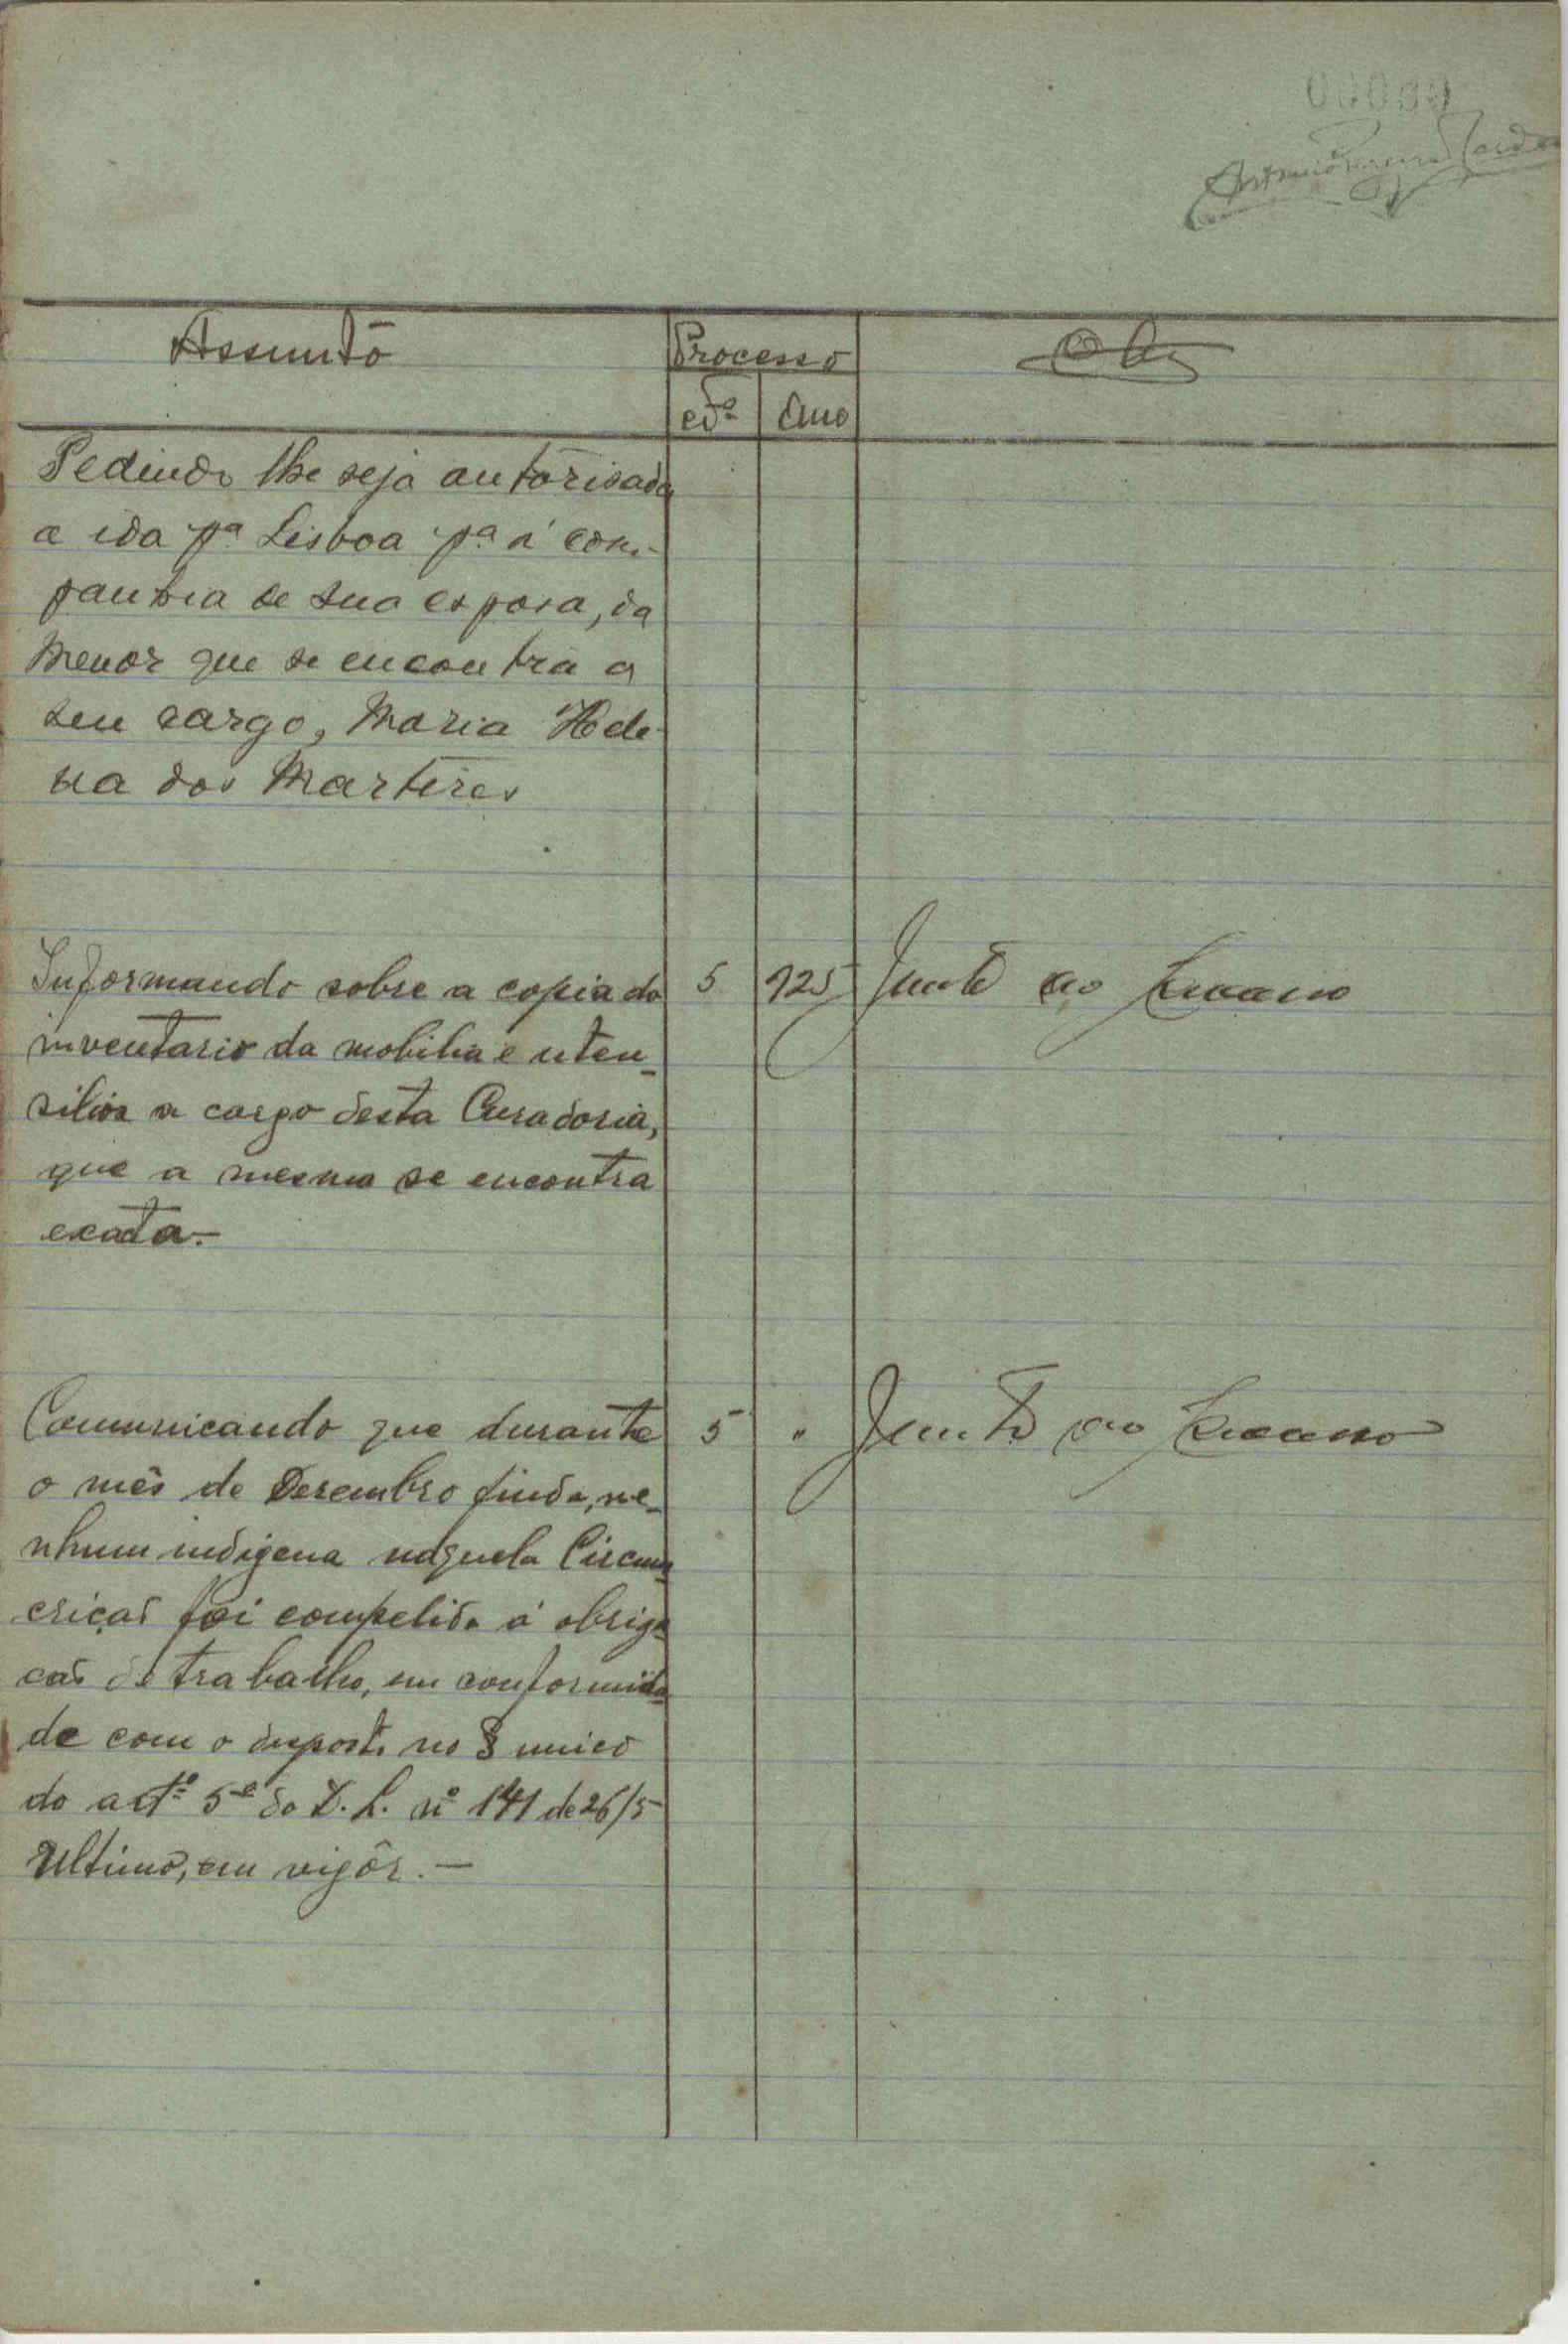 Assunto
Processo
Obs
Nº
Ano
Pedindo lhe seja autorisada
a ida pª Lisboa pª á com-
panhia de sua esposa, da
menor que se encontra a
seu cargo, Maria Hele-
na dos Martires
Informando sobre a copia do
inventario da mobilia e uten-
silios a cargo desta Curadoria,
que a mesma se encontra
exata.-
5
925
Junto ao Processo
Comunicando que durante
o mês de Desembro findo, ne-
nhum indigena naquela Circuns-
crição foi compelido á obriga-
cão de trabalho, em conformida-
de com o disposto no § unico
do artº 5º do D. L. nº 141 de 26/5
ultimo, em vigôr. -
5
"
Junto ao Processo